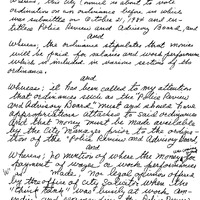 Whereas, this City Council is about to vote
ordinance on an ordinance before us which
was submitted on October 21, 1984 and en-
titled Police Review and Advisory Board, and
Whereas, the ordinance stipulates that moneys
must be paid for salaries and work performance
which is included in various sections of the
ordinance.
and
Whereas: it has been called to my attention
that ordinances such as the "Police Review
and Advisory Board," must and should have
appropriations attached to said ordinance
and that money must be made available
by the City Manager prior to the ordina-
tion of the "Police Review and Advisory Board
and
Whereas, no mention of where the money for
payment of wages & work performance
is made, no legal opinion offered
by the office of City Solicitor when this
"think tank" was busily at work am-